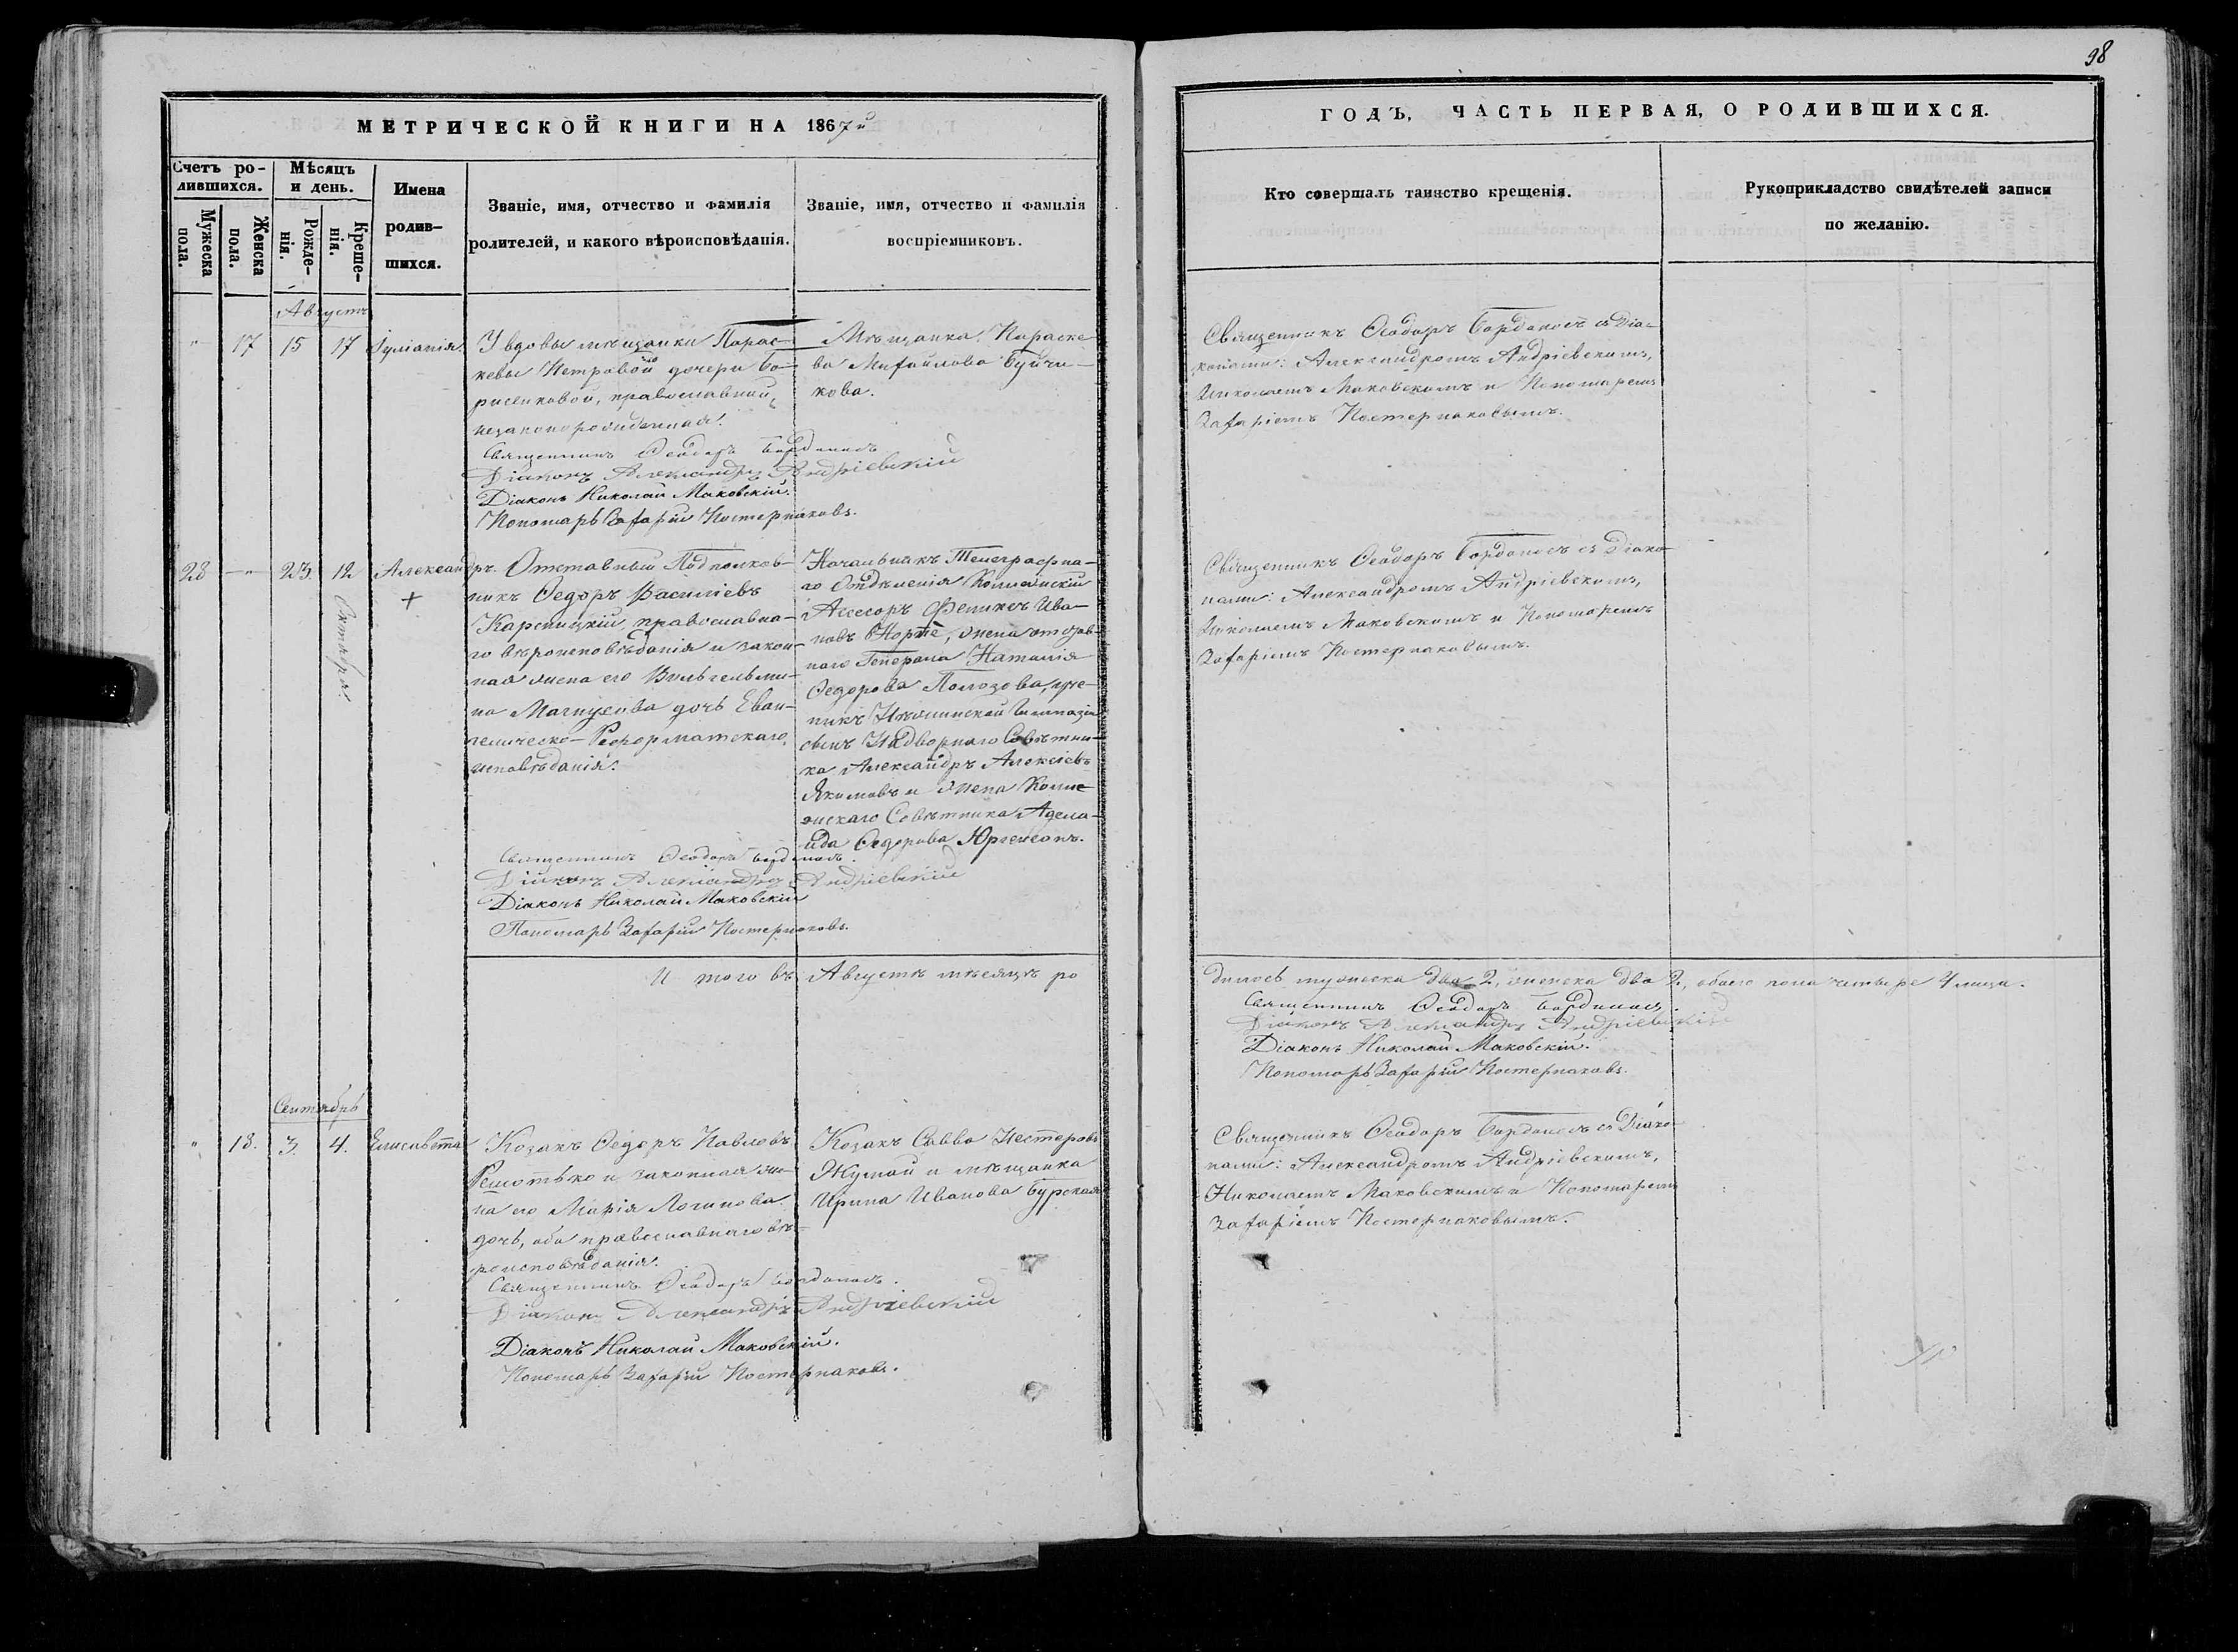 98
МЕТРИЧЕСКОЙ КНИГИ НА 1867й
ГОДЪ, ЧАСТЬ ПЕРВАЯ, О РОДИВШИХСЯ.
Счетъ ро-
дившихся.
Мужеска
пола.
Женска
пола.
Мѣсяцъ
и день.
Рожде-
нія.
Креще-
нія.
Имена
родив-
шихся.
Званіе, имя, отчество и фамилія
родителей, и какого вѣроисповѣданія.
Званіе, имя, отчество и фамилія
воспріемниковъ.
Кто совершалъ таинство крещенія.
Рукоприкладство свидѣтелей записи
по желанію.
Августъ
" 17 15 17 Іуліанія.
У вдовы мѣщанки Парас-
кевы Петровой дочери Бо-
рисенковой, православной,
незаконорожденная.
Священникъ Ѳеодоръ Борданосъ
Діаконъ Александръ Андріевскій
Діаконъ Николай Маковскій.
Пономарь Захарій Костернаковъ.
Мѣщанка Параске-
ва Михайлова
кова.
Священникъ Ѳеодоръ Борданосъ съ Діа-
конами: Александромъ Андріевскимъ,
Николаемъ Маковскимъ и Пономаремъ
Захаріемъ Костернаковымъ.
28 -"- 23. 12 Александръ.
+
Октября.
Отставный Подполков-
никъ Ѳедоръ Василіевъ
Карпицкій, православна-
го вѣроисповѣданія и закон-
ная жена его Вильгельми-
на Магнусова дочь Еван-
гелическо-Реформатскаго
исповѣданія.
Священникъ Ѳеодоръ Борданосъ.
Діаконъ Александръ Андріевскій
Діаконъ Николай Маковскій
Пономарь Захарій Костернаковъ.
Начальникъ Телеграфна-
го Отдѣленія Коллежскій
Ассесоръ Феликсъ Ива-
новъ Норпе, жена отстав-
наго Генерала Наталія
Ѳедорова Полозова, уче-
никъ Нѣжинской Гимназіи
сынъ Надворнаго Совѣтни-
ка Александръ Алексіевъ
Якимовъ и жена Колле-
жскаго Совѣтника Адела-
ида Ѳедорова Юргенсонъ.
Священникъ Ѳеодоръ Борданосъ съ Діако-
нами: Александромъ Андріевскимъ,
Николаемъ Маковскимъ и Пономаремъ
Захаріемъ Костернаковымъ.
И того въ Августѣ мѣсяцѣ ро
дилось мужеска два 2, женска два 2, обоего пола четыре 4 лица.
Священникъ Ѳеодоръ Борданосъ
Діаконъ Александръ Андріевскій
Діаконъ Николай Маковскій.
Пономарь Захарій Костернаковъ.
Сентябрь
" 18. 3. 4. Елисавета
Козакъ Ѳедоръ Павловъ
Решотько и законная же-
на его Марія Логинова
дочь, оба православнаго вѣ-
роисповѣданія.
Священникъ Ѳеодоръ Борданосъ.
Діаконъ Александръ Андріевскій
Діаконъ Николай Маковскій.
Пономарь Захарій Костернаковъ.
Козакъ Савва Нестеровъ
Жумай и мѣщанка
Ирина Иванова Бурская
Священникъ Ѳеодоръ Борданосъ съ Діако-
нами: Александромъ Андріевскимъ,
Николаемъ Маковскимъ и Пономаремъ
Захаріемъ Костернаковымъ.